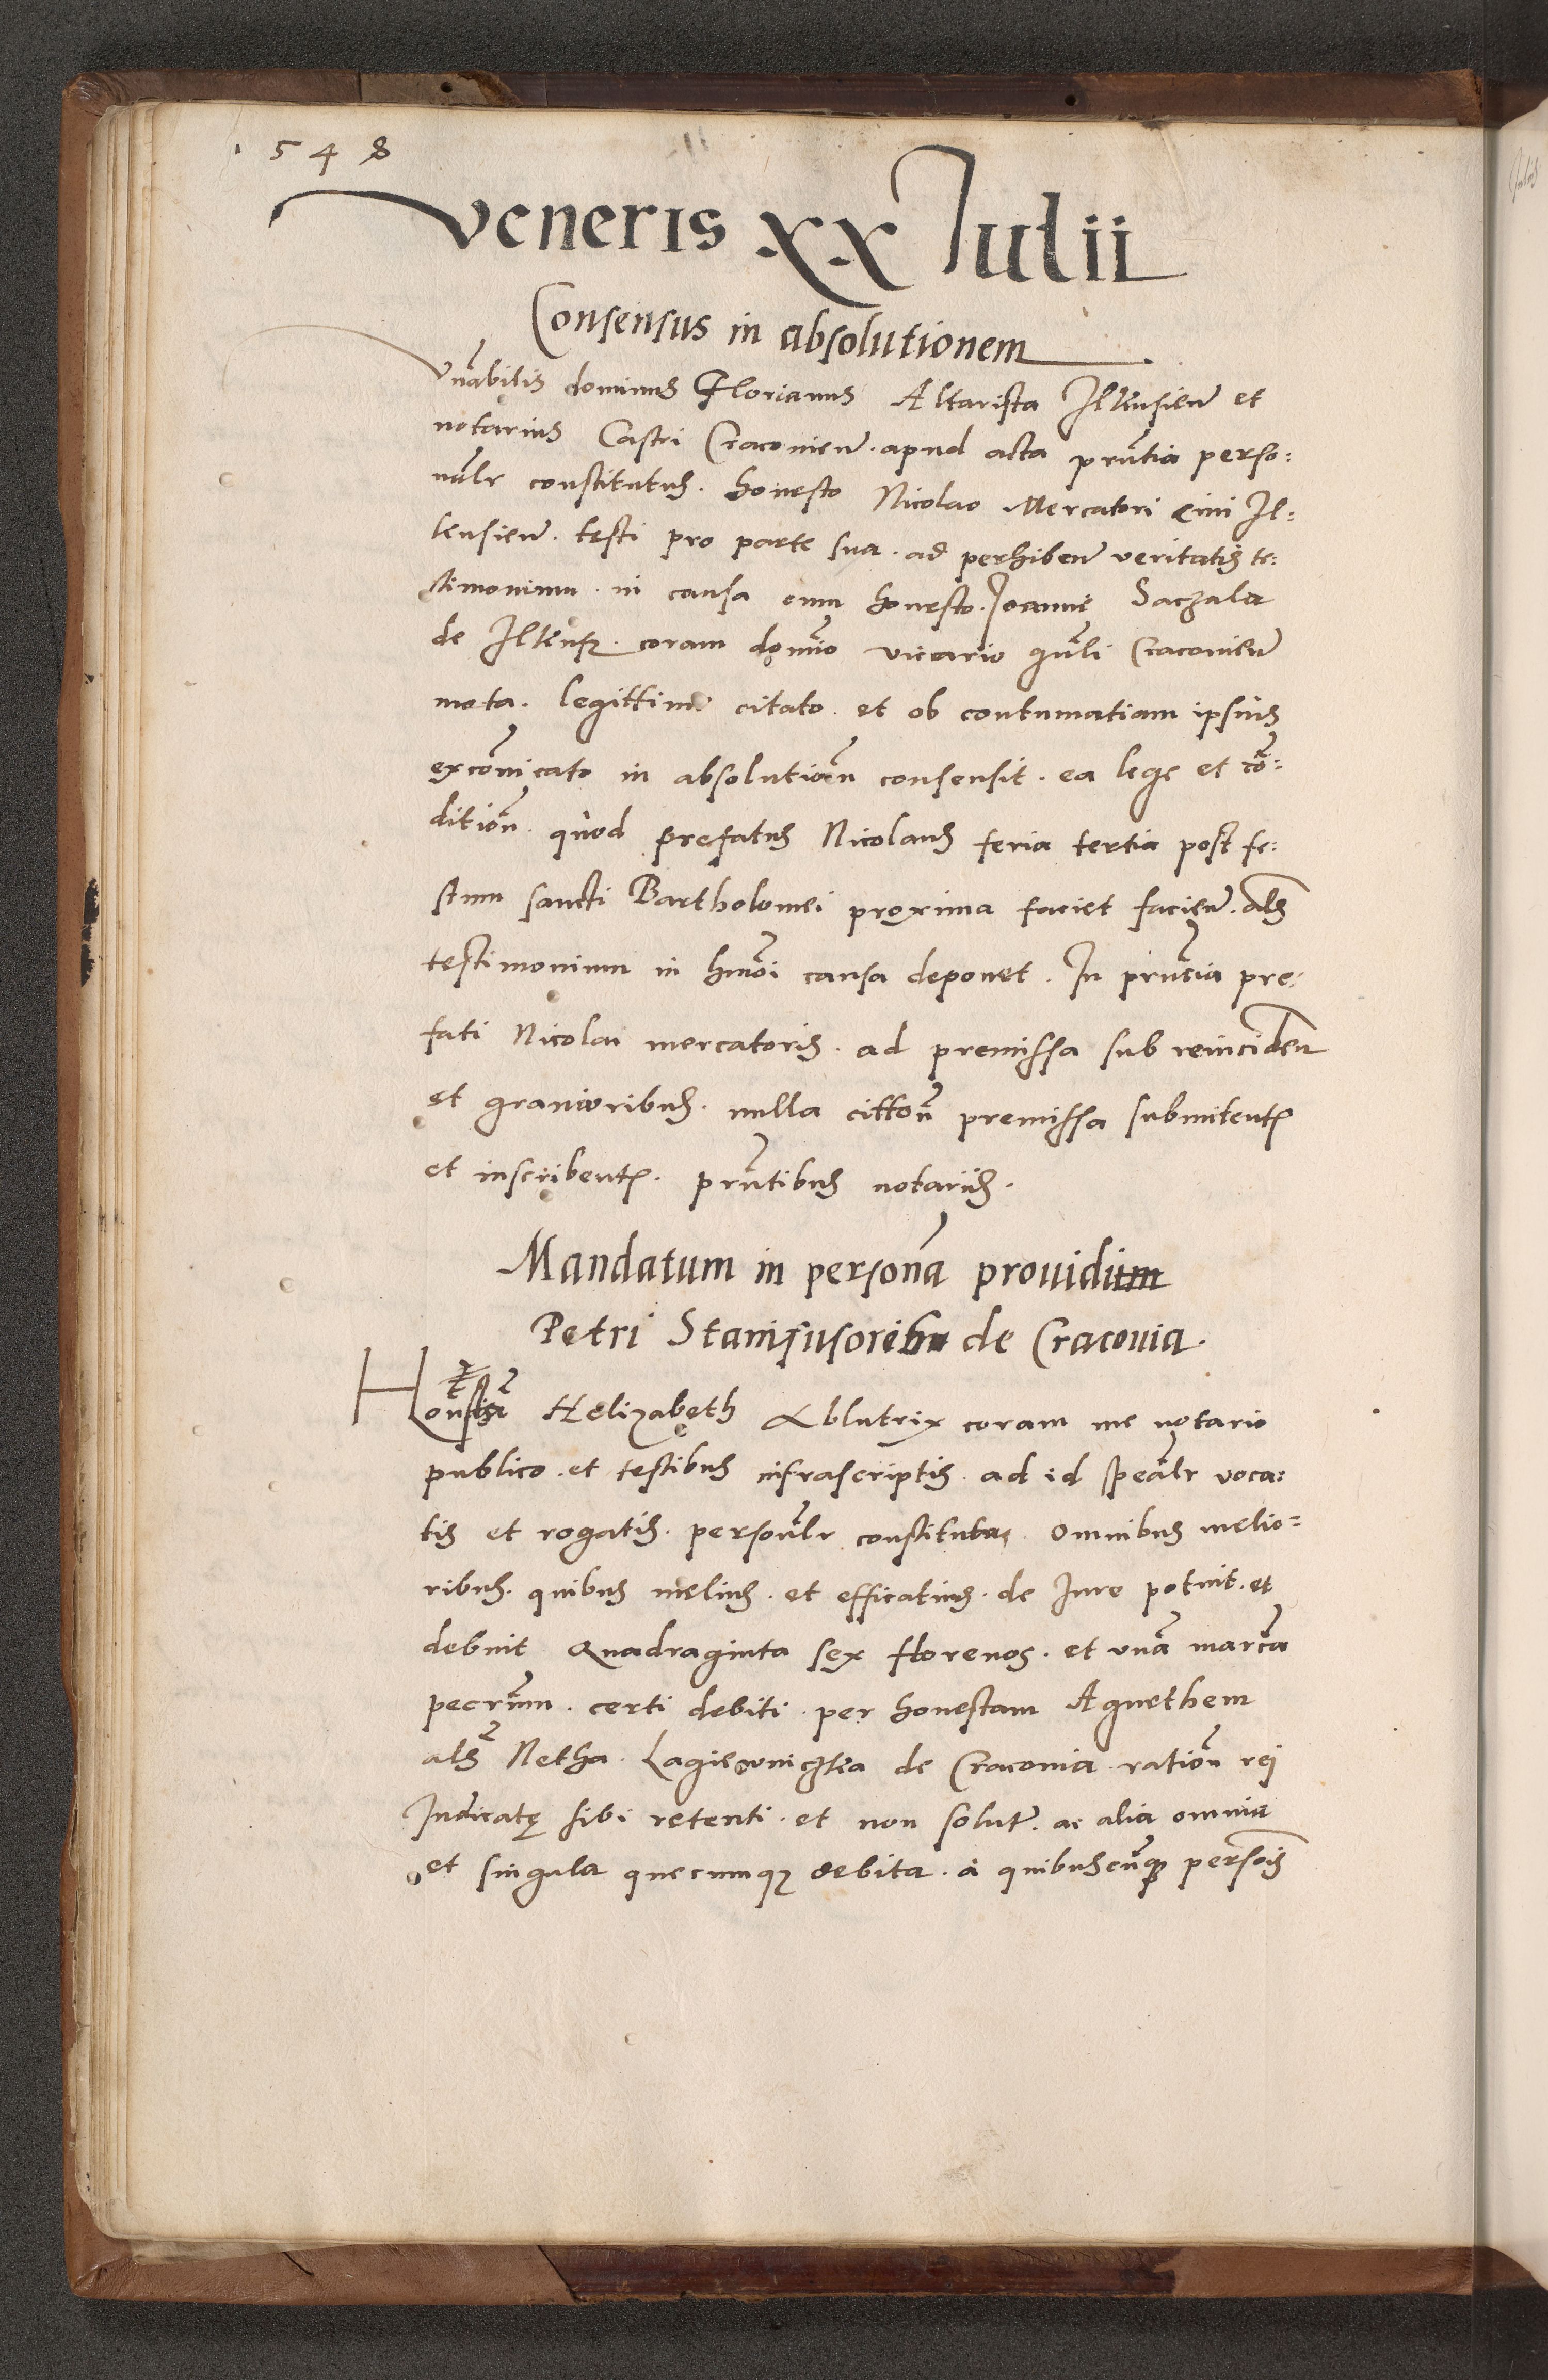 1548
Veneris xx Julii
Consensus in absolutionem
Vnabilis dominus Florianus Altarista Ilkusien et
notarius Castri Cracovien. apud acta prntia perso:
nalr constitutus. honesto Nicolao Mercatori civi Il:
kusien. testi pro parte sua. ad perhiben veritatis te:
stimonium. in causa cum honesto. Joanne Saczala
de Ilkusz. coram domino vicario gnli Cracovien
mota. legittime citato. et ob contumatiam ipsius
excōnicato in absolutiōn consensit. ea lege et cō:
ditiōn. quod prefatus Nicolaus feria tertia post fe:
stum sancti Bartholomei proxima faciet facien. als
testimonium in hmōi causa deponet. In prntia pre:
fati Nicolai mercatoris. ad premissa sub reinciden
et gravioribus. nulla cittōn premissa submitent
et inscribent. prntibus notariis.
Mandatum in personā providi
Petri Stanifusoris de Cracovia.
Honesta Helizabeth Ablutrix coram me notario
publico. et testibus infrascriptis. ad id spealr voca:
tis et rogatis. personalr constituta. Omnibus melio:
ribus. quibus melius. et efficatius. de Iure potuit. et
debuit Quadraginta sex florenos. et unā marcā
pecrum. certi debiti. per honestam Agnethem
als Netha. de Cracovia. ratiōn rei
Iudicatę sibi retenti. et non solut. ac alia omnia
et singula quecumqz debita. à quibuscūqz persois